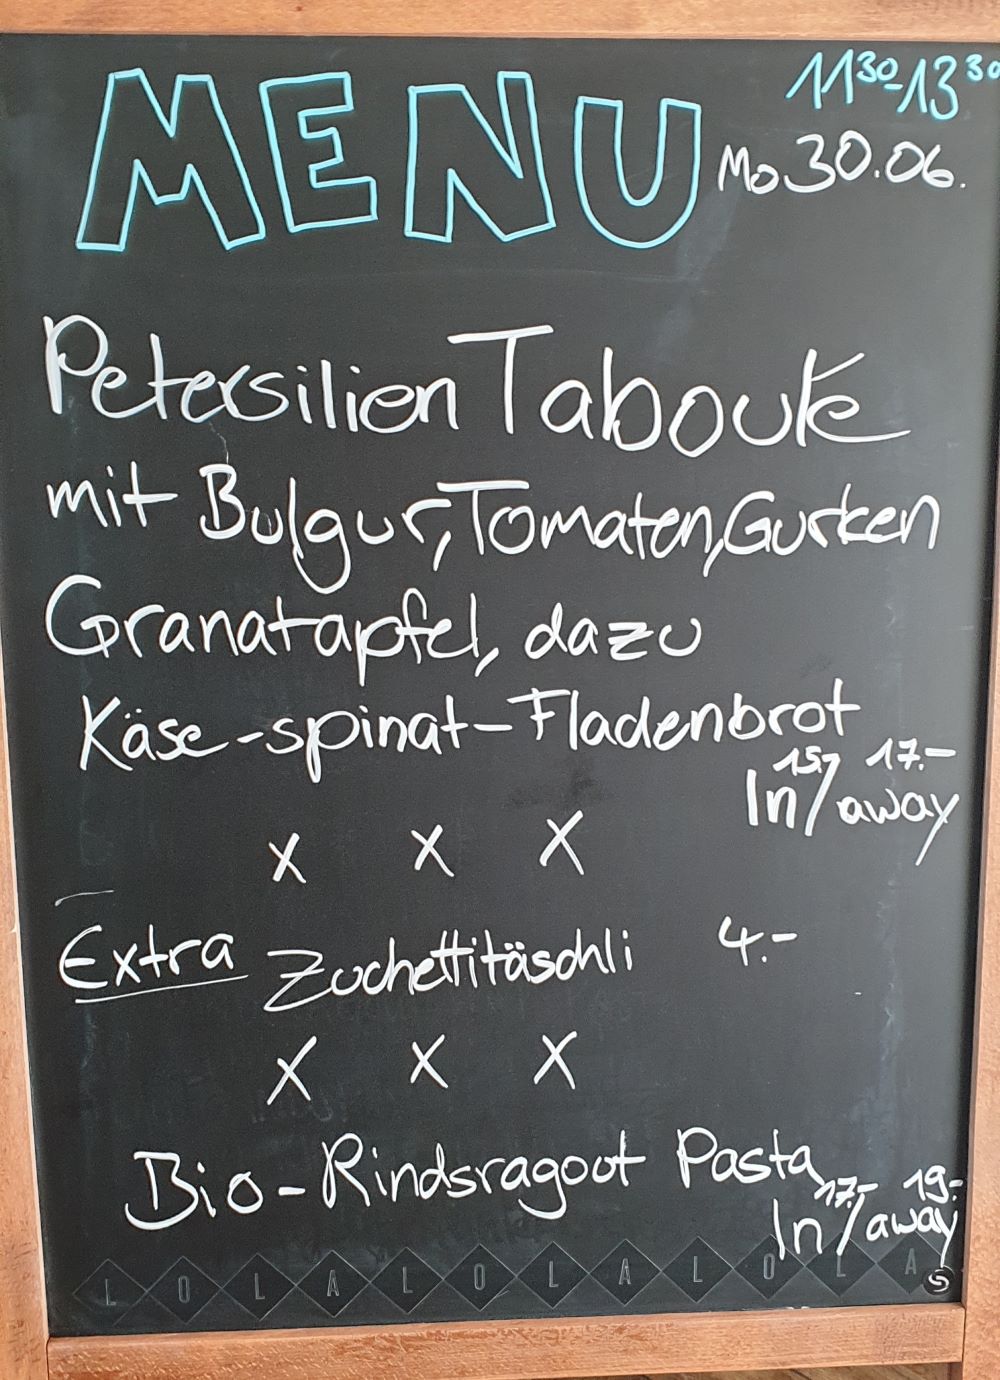 MENU
11³⁰-13³⁰
Mo 30.06.
Petersilien Taboulé
mit Bulgur, Tomaten, Gurken
Granatapfel, dazu
Käse-spinat-Fladenbrot
15.- 17.-
In/away
X X X
Extra Zuchettitäschli 4.-
X X X
Bio-Rindsragout Pasta
17.- 19.-
In/away
LOLALOLALOLA